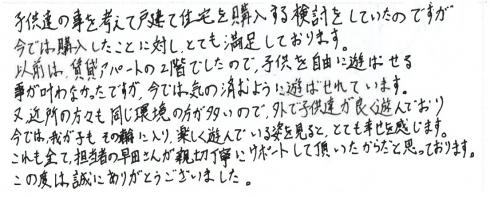 子供達の事を考えて戸建て住宅を購入する検討をしていたのですが
今では購入したことに対し、とても満足しております。
以前は、賃貸アパートの2階でしたので、子供を自由に遊ばせる
事が叶わなかったですが、今では気の済むように遊ばせれています。
又近所の方々も同じ環境の方が多いので、外で子供達が良く遊んでおり
今では、我が子もその輪に入り、楽しく遊んでいる姿を見ると、とても幸せを感じます。
これも全て、担当者の早田さんが親切丁寧にサポートして頂いたからだと思っております。
この度は、誠にありがとうございました。